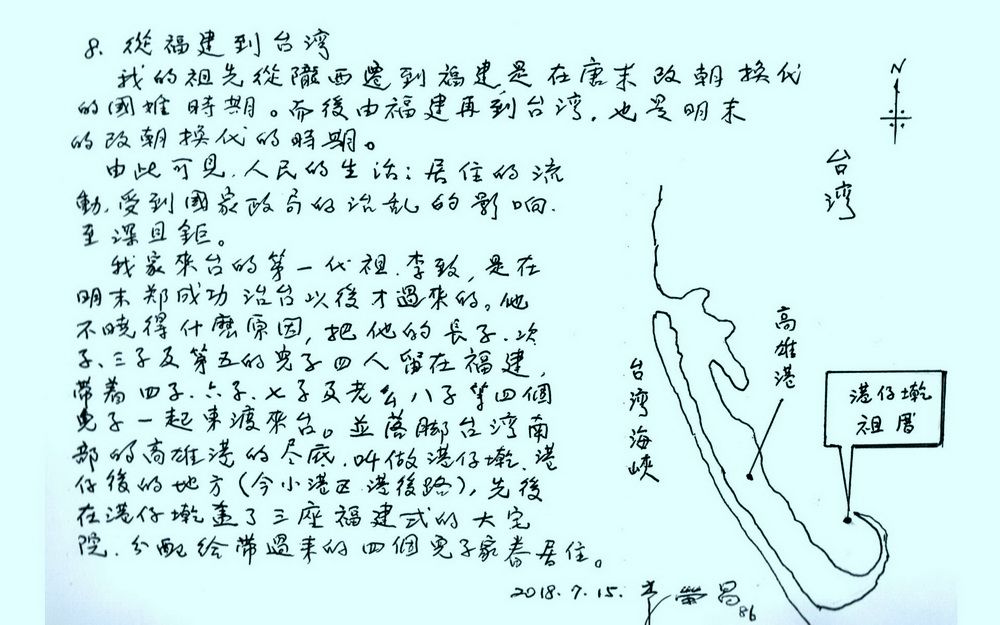 8. 從福建到台湾
我的祖先從隴西遷到福建是在唐末改朝換代
的國難時期。而後由福建再到台湾，也是明末
的改朝換代的時期。
由此可見，人民的生活：居住的流
動，受到國家政局的治乱的影响，
至深且鉅。
我家來台的第一代祖，李致，是在
明末郑成功治台以後才過來的。他
不曉得什麼原因，把他的長子、次
子、三子及第五的兒子四人留在福建，
帶着四子、六子、七子及老么八子等四個
兒子一起東渡來台。並落脚台湾南
部的高雄港的尽底，叫做港仔墘、港
仔後的地方（今小港区港後路），先後
在港仔墘盖了三座福建式的大宅
院，分配给帶過来的四個兒子家眷居住。
2018.7.15. 李榮昌 86
N
台湾
高雄港
台湾海峽
港仔墘
祖厝